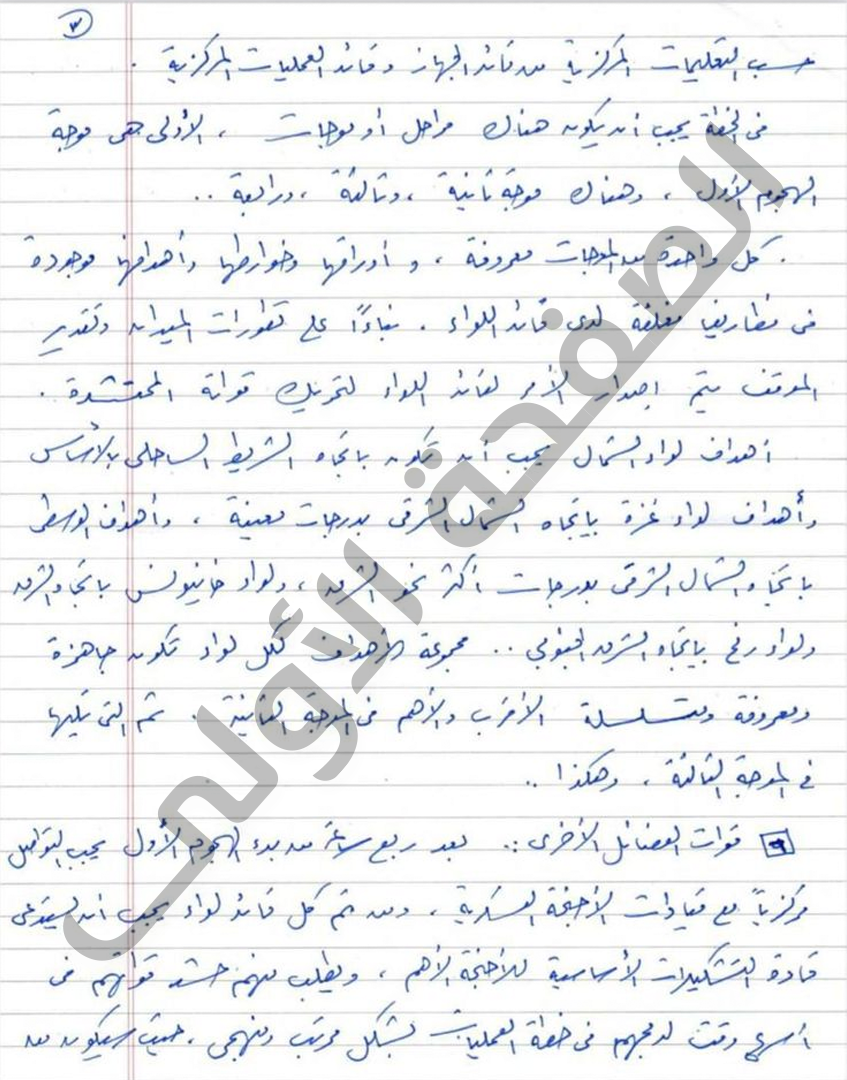 ٣
حسب التعليمات المركزية من قائد الجهاز وقائد العمليات المركزية .
في الخطة يجب أن يكون هناك مراحل أو موجات ، الأولى هي موجة
الهجوم الأول ، وهناك موجة ثانية ، وثالثة ، ورابعة ..
. كل واحدة من الموجات معروفة ، و أوراقها وخوارطها وأهدافها موجودة
في مظاريف مغلقة لدى قائد اللواء . بناءًا على تطورات الميدان وتقدير
الموقف يتم إصدار الأمر لقائد اللواء لتحريك قواته المحتشدة .
أهداف لواء الشمال يجب أن تكون باتجاه الشريط الساحلي بالأساس
وأهداف لواء غزة باتجاه الشمال الشرقي بدرجات معينة ، وأهداف الوسطى
باتجاه الشمال الشرقي بدرجات أكثر نحو الشرق ، ولواء خانيونس باتجاه الشرق
ولواء رفح باتجاه الشرق الجنوبي .. مجموعة الأهداف لكل لواء تكون جاهزة
ومعروفة ومتسلسلة الأقرب والأهم في الموجة الثانية . ثم التي تليها
في الموجة الثالثة ، وهكذا ..
٩ قوات الفصائل الأخرى :. بعد ربع ساعة من بدء الهجوم الأول يجب التواصل
مركزياً مع قيادات الأجنحة العسكرية ، ومن ثم كل قائد لواء يجب أن يستدعي
قادة التشكيلات الأساسية للأجنحة الأهم ، ويطلب منهم حشد قواتهم في
أسرع وقت لدمجهم في خطة العمليات بشكل مرتب ومنهجي ، حيث سيكون من
الصفحة الأولى